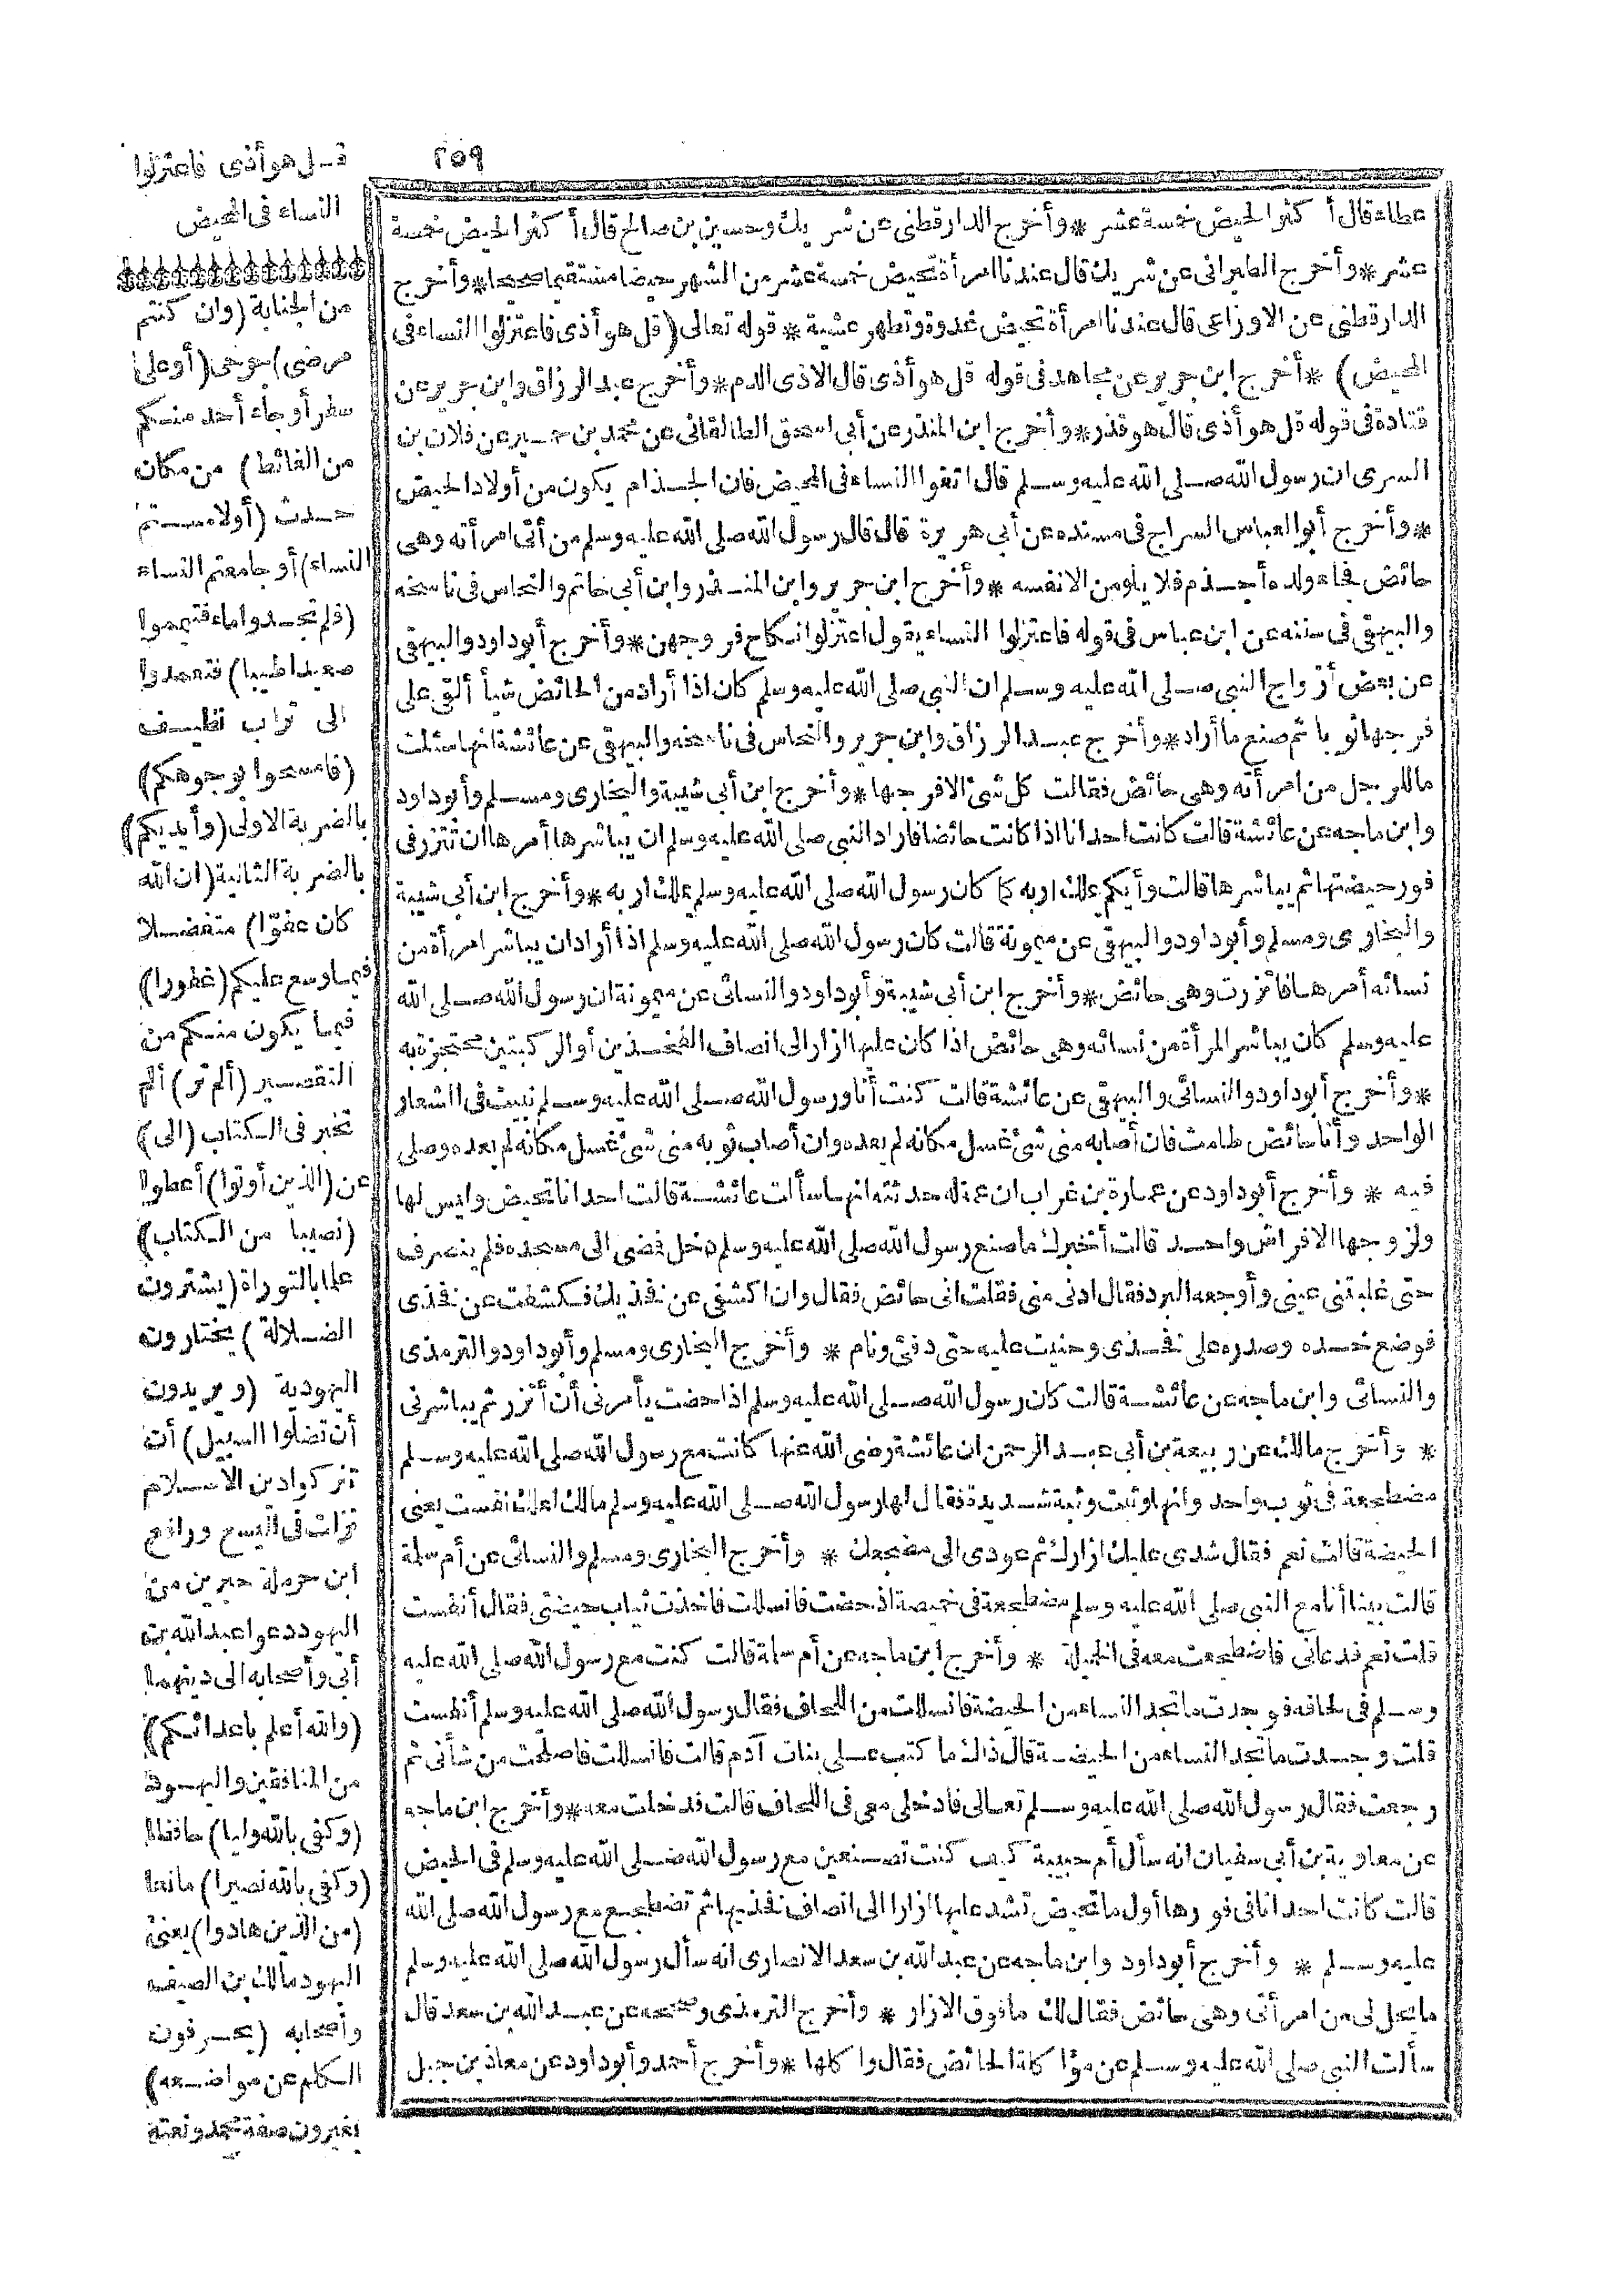 ٢٥٩
عطاء قال أكثر الحيض خمسة عشر * وأخرج الدارقطنى عن شريك وحسين بن صالح قال أكثر الحيض خمسة
عشر * وأخرج الطبرانى عن شريك قال عندنا امرأة تحيض خمسة عشر من الشهر حيضا مستقيما صحيحا * وأخرج
الدارقطنى عن الاوزاعى قال عندنا امرأة تحيض غدوة وتطهر عشية * قوله تعالى (قل هو أذى فاعتزلوا النساء فى
المحيض) * أخرج ابن جرير عن مجاهد فى قوله قل هو أذى قال الاذى الدم * وأخرج عبد الرزاق وابن جرير عن
قتادة فى قوله قل هو أذى قال هو قذر * وأخرج ابن المنذر عن أبى اسحق الطالقانى عن محمد بن حمير عن فلان بن
السرى ان رسول الله صلى الله عليه وسلم قال اتقوا النساء فى المحيض فان الجذام يكون من أولاد الحيض
* وأخرج أبو العباس السراج فى مسنده عن أبى هريرة قال قال رسول الله صلى الله عليه وسلم من أتى امرأته وهى
حائض فجاء ولده أجذم فلا يلومن الا نفسه * وأخرج ابن جرير وابن المنذر وابن أبى حاتم والنحاس فى ناسخه
والبيهقى فى سننه عن ابن عباس فى قوله فاعتزلوا النساء يقول اعتزلوا نكاح فروجهن * وأخرج أبو داود والبيهقى
عن بعض أزواج النبى صلى الله عليه وسلم ان النبى صلى الله عليه وسلم كان اذا أراد من الحائض شيأ ألقى على
فرجها ثوبا ثم صنع ما أراد * وأخرج عبد الرزاق وابن جرير والنحاس فى ناسخه والبيهقى عن عائشة انها سئلت
ما للرجل من امرأته وهى حائض فقالت كل شئ الا فرجها * وأخرج ابن أبى شيبة والبخارى ومسلم وأبو داود
وابن ماجه عن عائشة قالت كانت احدانا اذا كانت حائضا فاراد النبى صلى الله عليه وسلم ان يباشرها أمرها ان تتزر فى
فور حيضتها ثم يباشرها قالت وأيكم يملك اربه كما كان رسول الله صلى الله عليه وسلم يملك اربه * وأخرج ابن أبى شيبة
والبخارى ومسلم وأبو داود والبيهقى عن ميمونة قالت كان رسول الله صلى الله عليه وسلم اذا أراد ان يباشر امرأة من
نسائه أمرها فاتزرت وهى حائض * وأخرج ابن أبى شيبة وأبو داود والنسائى عن ميمونة ان رسول الله صلى الله
عليه وسلم كان يباشر المرأة من نسائه وهى حائض اذا كان عليها ازار الى انصاف الفخذين أو الركبتين محتجزة به
* وأخرج أبو داود والنسائى والبيهقى عن عائشة قالت كنت أنا ورسول الله صلى الله عليه وسلم نبيت فى الشعار
الواحد وأنا حائض طامث فان أصابه منى شئ غسل مكانه لم يعده وان أصاب ثوبه منى شئ غسل مكانه لم يعده وصلى
فيه * وأخرج أبو داود عن عمارة بن غراب ان عمة له حدثته انها سألت عائشة قالت احدانا تحيض وليس لها
ولزوجها الا فراش واحد قالت أخبرك ما صنع رسول الله صلى الله عليه وسلم دخل فمضى الى مسجده فلم ينصرف
حتى غلبتنى عينى وأوجعه البرد فقال ادنى منى فقلت انى حائض فقال وان اكشفى عن فخذيك فكشفت عن فخذى
فوضع خده وصدره على فخذى وحنيت عليه حتى دفئ ونام * وأخرج البخارى ومسلم وأبو داود والترمذى
والنسائى وابن ماجه عن عائشة قالت كان رسول الله صلى الله عليه وسلم اذا حضت يأمرنى أن أتزر ثم يباشرنى
* وأخرج مالك عن ربيعة بن أبى عبد الرحمن ان عائشة رضى الله عنها كانت مع رسول الله صلى الله عليه وسلم
مضطجعة فى ثوب واحد وانها وثبت وثبة شديدة فقال لها رسول الله صلى الله عليه وسلم مالك لعلك نفست يعنى
الحيضة قالت نعم فقال شدى عليك ازارك ثم عودى الى مضجعك * وأخرج البخارى ومسلم والنسائى عن أم سلمة
قالت بينا أنا مع النبى صلى الله عليه وسلم مضطجعة فى خميصة اذ حضت فانسللت فاخذت ثياب حيضتى فقال أنفست
قلت نعم فدعانى فاضطجعت معه فى الخميلة * وأخرج ابن ماجه عن أم سلمة قالت كنت مع رسول الله صلى الله عليه
وسلم فى لحافه فوجدت ما تجد النساء من الحيضة فانسللت من اللحاف فقال رسول الله صلى الله عليه وسلم أنفست
قلت وجدت ما تجد النساء من الحيضة قال ذاك ما كتب على بنات آدم قالت فانسللت فاصلحت من شأنى ثم
رجعت فقال رسول الله صلى الله عليه وسلم تعالى فادخلى معى فى اللحاف قالت فدخلت معه * وأخرج ابن ماجه
عن معاوية بن أبى سفيان انه سأل أم حبيبة كيف كنت تصنعين مع رسول الله صلى الله عليه وسلم فى الحيض
قالت كانت احدانا فى فورها أول ما تحيض تشد عليها ازارا الى انصاف فخذيها ثم تضطجع مع رسول الله صلى الله
عليه وسلم * وأخرج أبو داود وابن ماجه عن عبد الله بن سعد الانصارى انه سأل رسول الله صلى الله عليه وسلم
ما يحل لى من امرأتى وهى حائض فقال لك ما فوق الازار * وأخرج الترمذى وصححه عن عبد الله بن سعد قال
سألت النبى صلى الله عليه وسلم عن مؤاكلة الحائض فقال واكلها * وأخرج أحمد وأبو داود عن معاذ بن جبل
قل هو أذى فاعتزلوا
النساء فى المحيض
من الجنابة (وان كنتم
مرضى) جرحى (أو على
سفر أو جاء أحد منكم
من الغائط) من مكان
حدث (أو لامستم
النساء) أو جامعتم النساء
(فلم تجدوا ماء فتيمموا
صعيدا طيبا) فتعمدوا
الى تراب نظيف
(فامسحوا بوجوهكم)
بالضربة الاولى (وأيديكم)
بالضربة الثانية (ان الله
كان عفوّا) متفضلا
فيما وسع عليكم (غفورا)
فيما يكون منكم من
التقصير (ألم تر) ألم
تخبر فى الكتاب (الى)
عن (الذين أوتوا) أعطوا
(نصيبا من الكتاب)
علما بالتوراة (يشترون
الضلالة) يختارون
اليهودية (ويريدون
أن تضلوا السبيل) أن
تتركوا دين الاسلام
نزلت فى اليسع ورافع
ابن حرملة حبرين من
اليهود دعوا عبد الله بن
أبىّ وأصحابه الى دينهما
(والله أعلم باعدائكم)
من المنافقين واليهود
(وكفى بالله وليا) حافظا
(وكفى بالله نصيرا) مانعا
(من الذين هادوا) يعنى
اليهود مالك بن الصيف
وأصحابه (يحرفون
الكلم عن مواضعه)
يغيرون صفة محمد ونعته